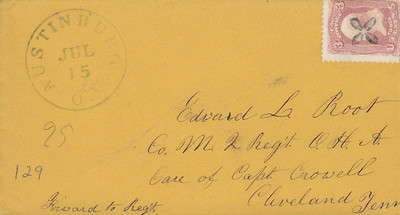 AUSTINBURG
JUL
15
O.
Edward L. Root
Co. M 2 Regt. O. H. A.
Care of Capt. Crowell
Cleveland Tenn
Forward to Regt.
129
3 3